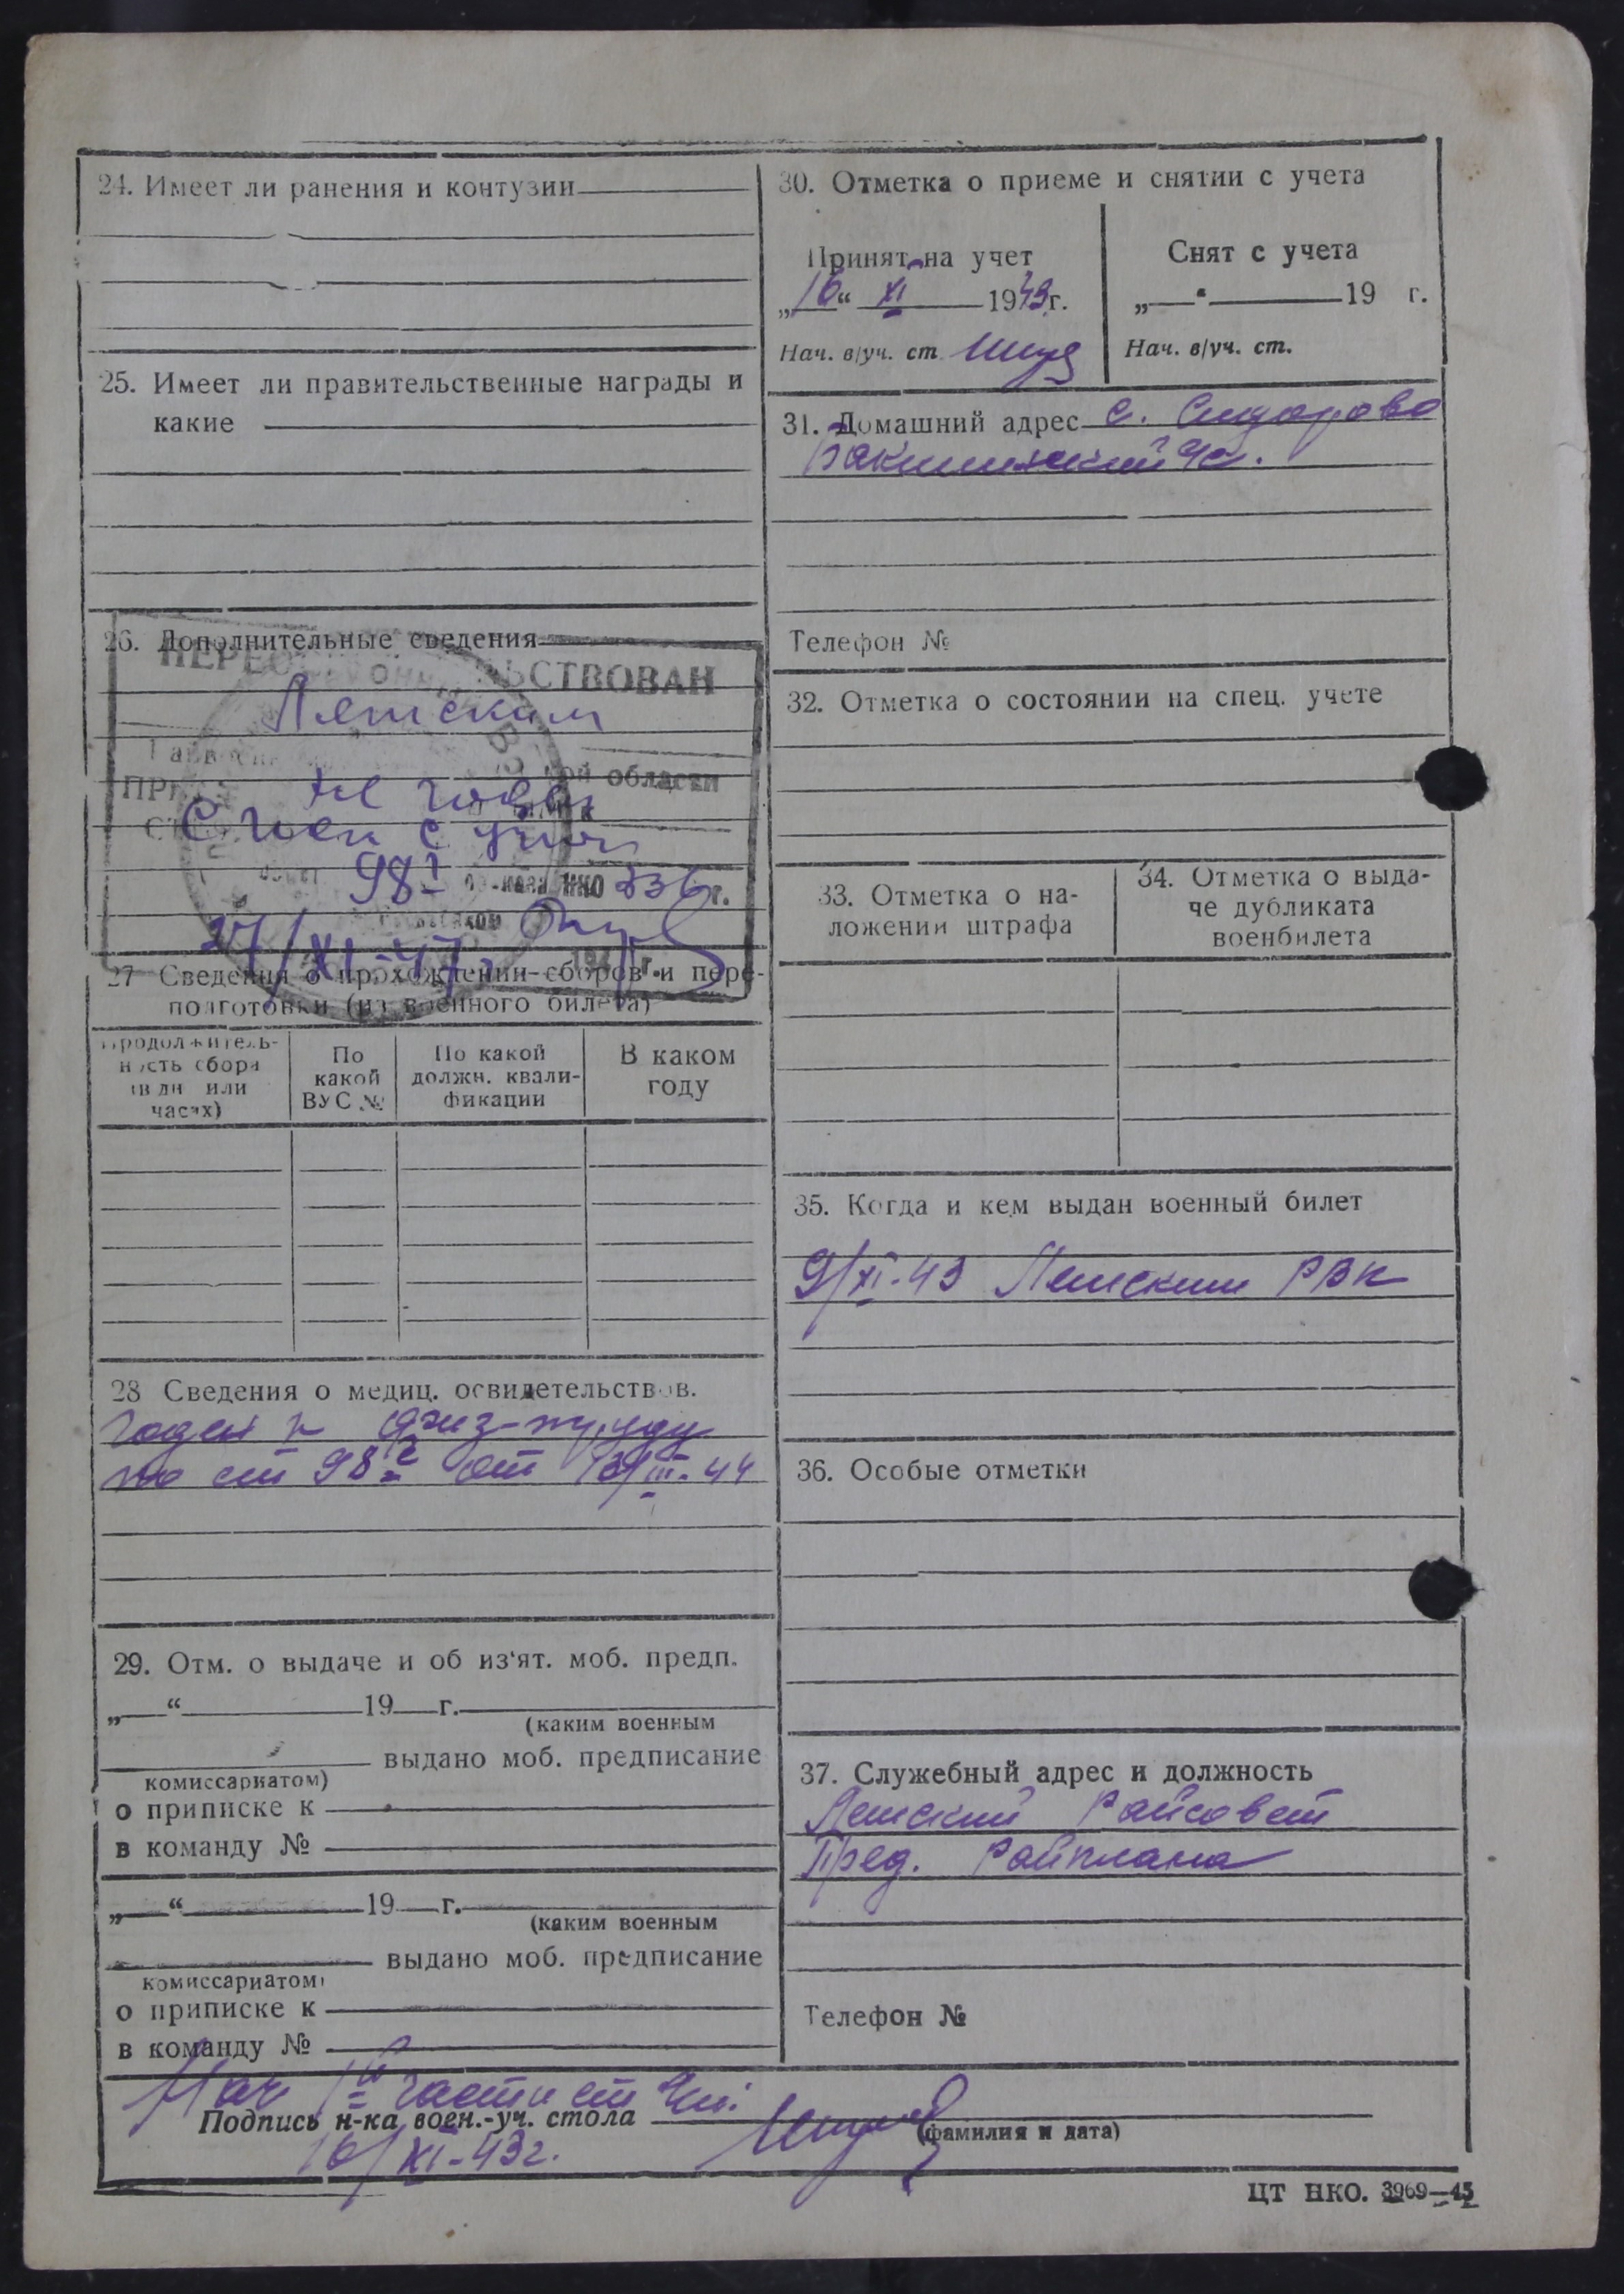 24. Имеет ли ранения и контузии
25. Имеет ли правительственные награды и
какие
26. Дополнительные сведения
Летским
области
Не годен
С воен с учёт
98 I приказа НКО 336 г.
27/XI-47
27 Сведения о прохождении сборов и пере-
подготовки (из военного билета)
Продолжитель-
ность сбора
(в дн или
часах)
По
какой
ВУС №
По какой
должн. квали-
фикации
В каком
году
28 Сведения о медиц. освидетельствов.
годен к физ-труду
по ст 98 г от 13/III-44
29. Отм. о выдаче и об из‘ят. моб. предп.
„ “ 19 г.
(каким военным
выдано моб. предписание
комиссариатом)
о приписке к
в команду №
„ “ 19 г.
(каким военным
выдано моб. предписание
комиссариатом)
о приписке к
в команду №
30. Отметка о приеме и снятии с учета
Принят на учет
„16“ XI 1943г.
Нач. в/уч. ст.
Снят с учета
„ “ 19 г.
Нач. в/уч. ст.
31. Домашний адрес с. Сидорово
Телефон №
32. Отметка о состоянии на спец. учете
33. Отметка о на-
ложении штрафа
34. Отметка о выда-
че дубликата
военбилета
35. Когда и кем выдан военный билет
9/XI-43 Летским РВК
36. Особые отметки
37. Служебный адрес и должность
Летский Райсовет
Пред. Райплана
Телефон №
Нач IV части ст
Подпись н-ка воен.-уч. стола
(фамилия и дата)
16/XI-43г.
ЦТ НКО. 3969—45